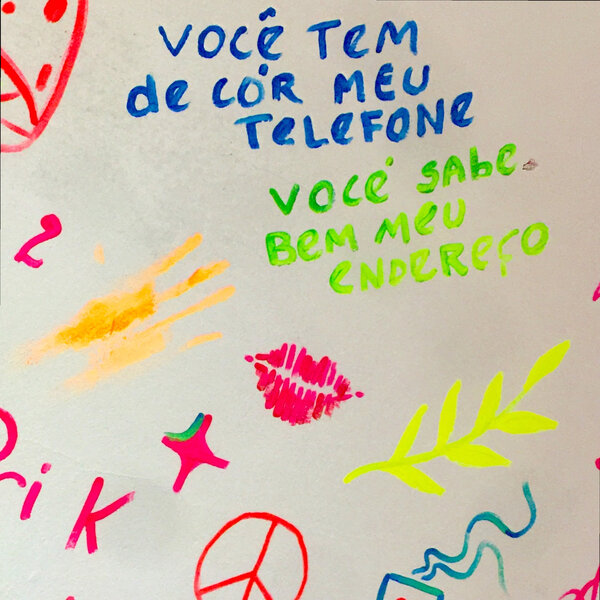 VOCÊ TEM
de CÓR MEU
TELEFONE
VOCÊ SAbe
BEM MEU
ENDEREÇO
2
riK